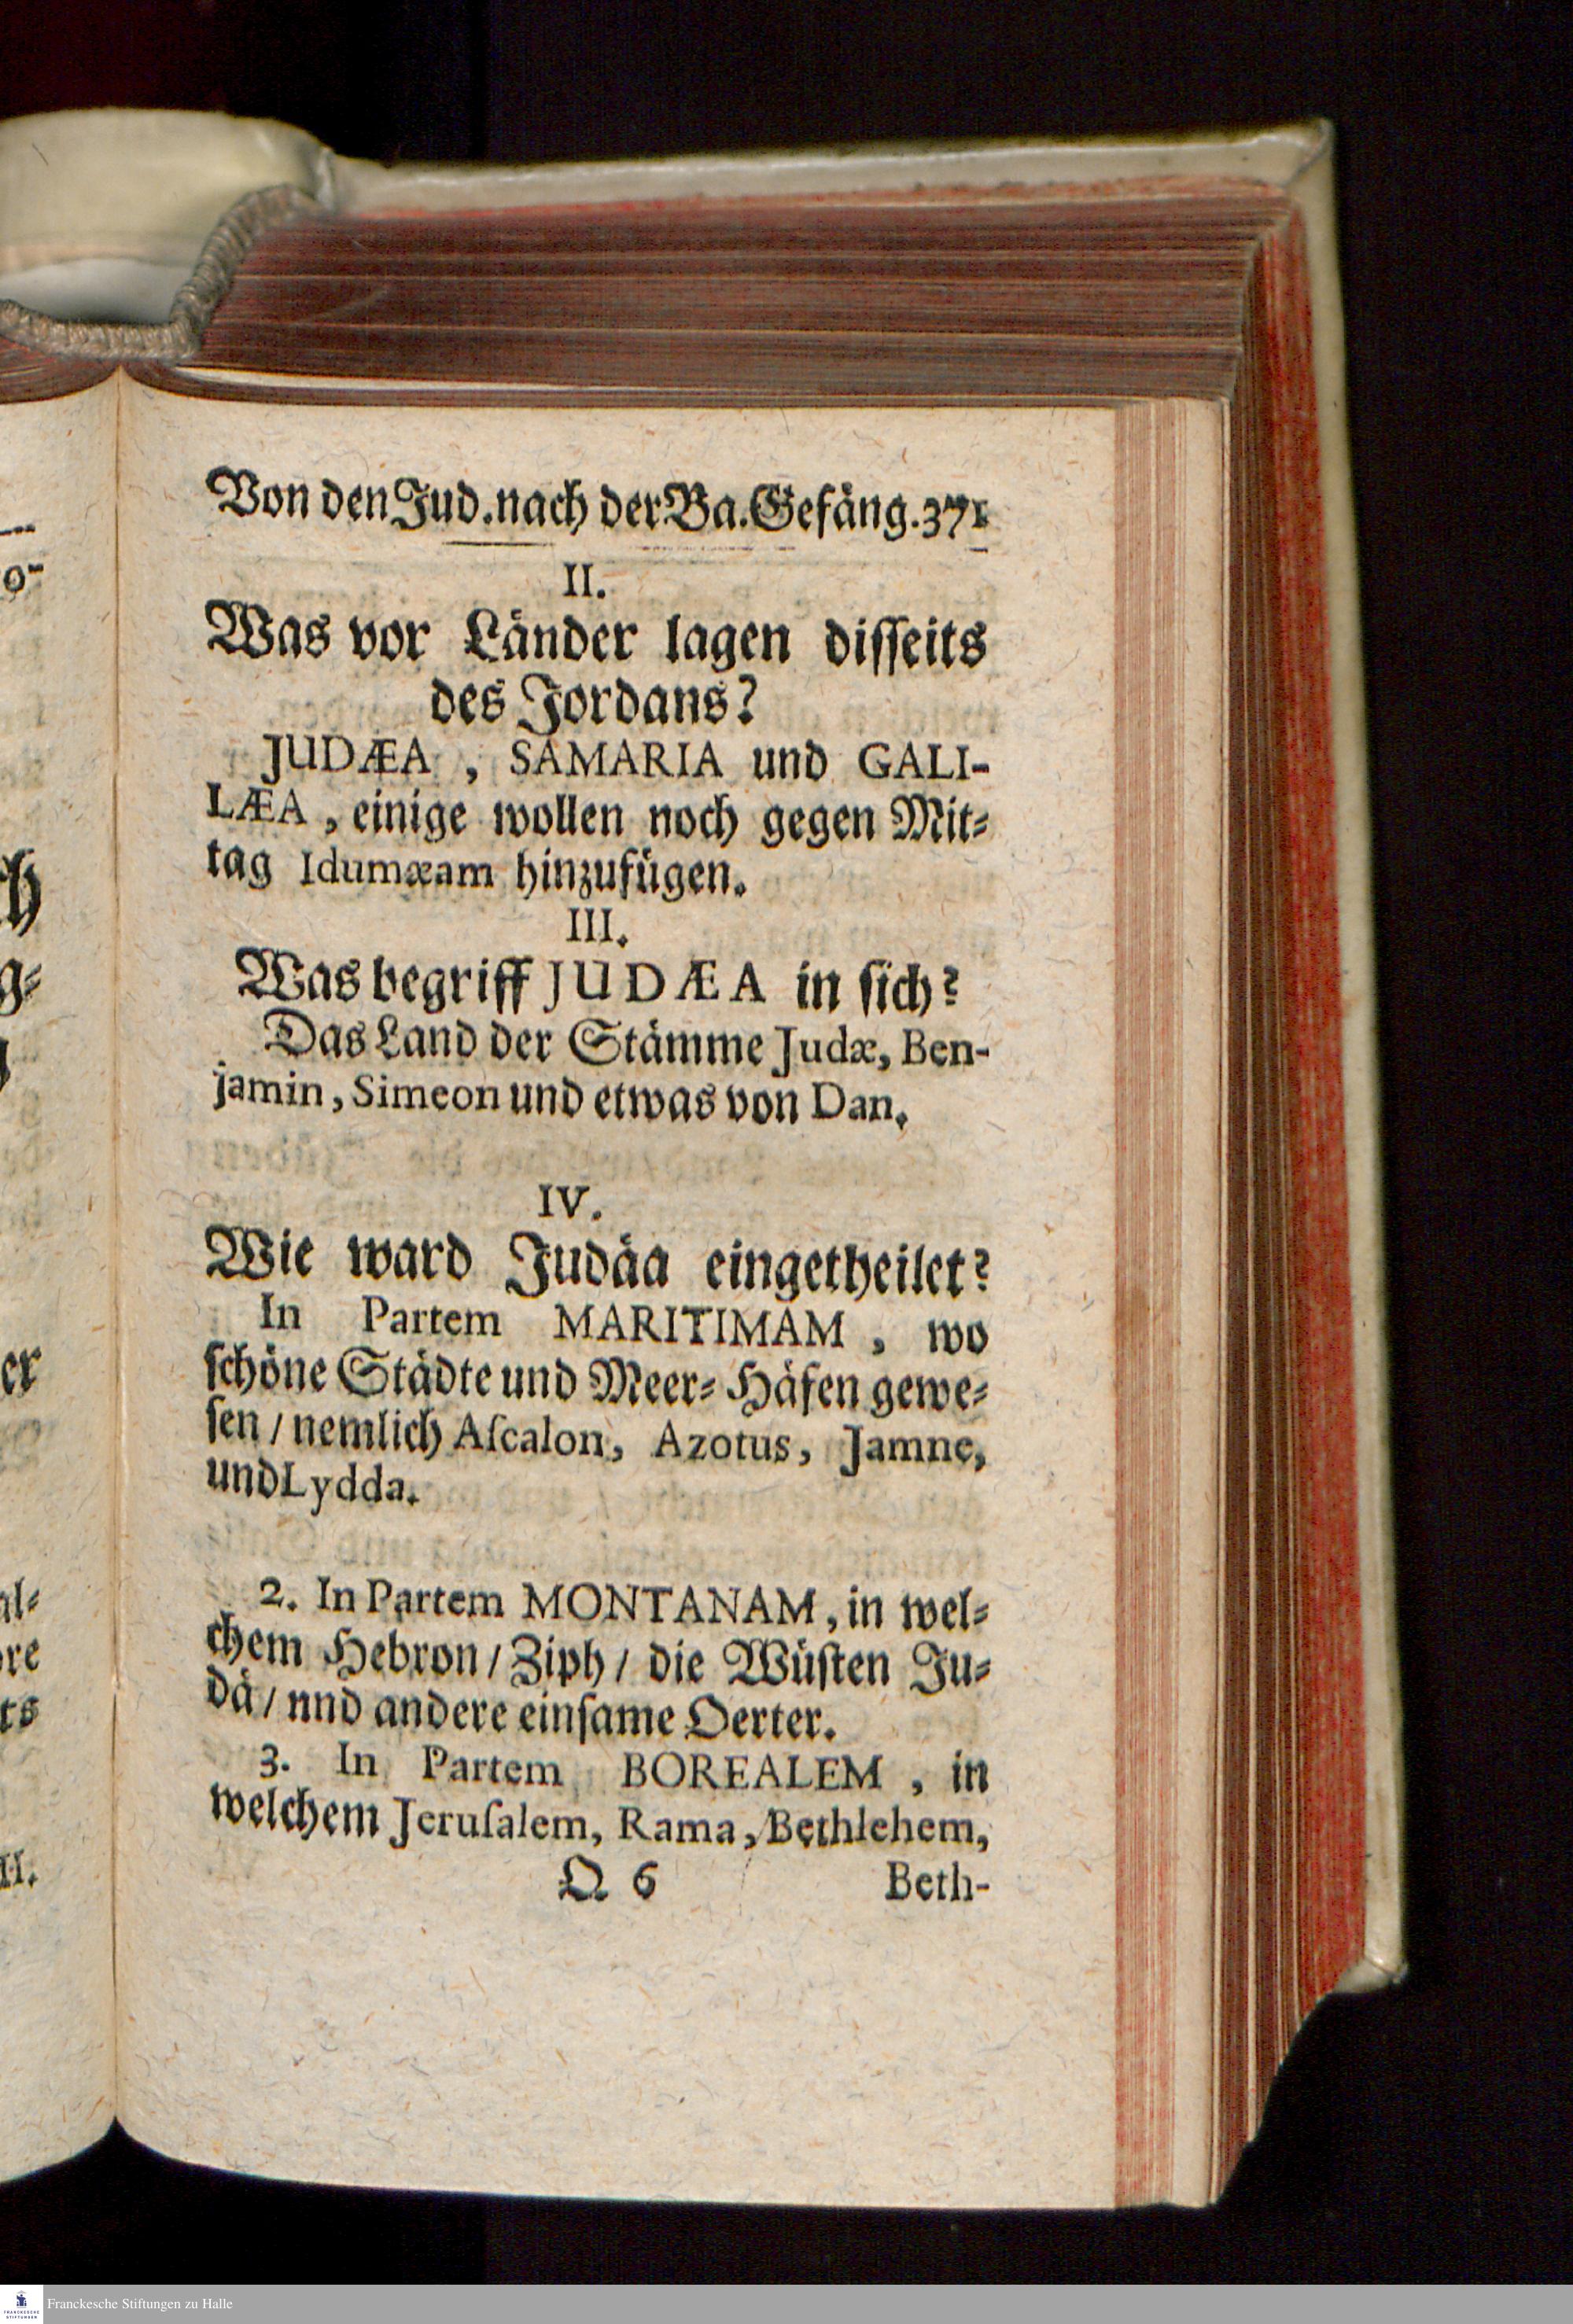 Von den Jud. nach der Ba. Gefäng. 371
II.
Was vor Länder lagen disseits
des Jordans?
JUDÆA, SAMARIA und GALI-
LÆA, einige wollen noch gegen Mit-
tag Idumæam hinzufügen.
III.
Was begriff JUDÆA in sich?
Das Land der Stämme Judæ, Ben-
jamin, Simeon und etwas von Dan.
IV.
Wie ward Judäa eingetheilet?
In Partem MARITIMAM, wo
schöne Städte und Meer-Häfen gewe-
sen / nemlich Ascalon, Azotus, Jamne,
und Lydda.
2. In Partem MONTANAM, in wel-
chem Hebron / Ziph / die Wüsten Ju-
dä / nnd andere einsame Oerter.
3. In Partem BOREALEM, in
welchem Jerusalem, Rama, Bethlehem,
Q 6 Beth-
Franckesche Stiftungen zu Halle